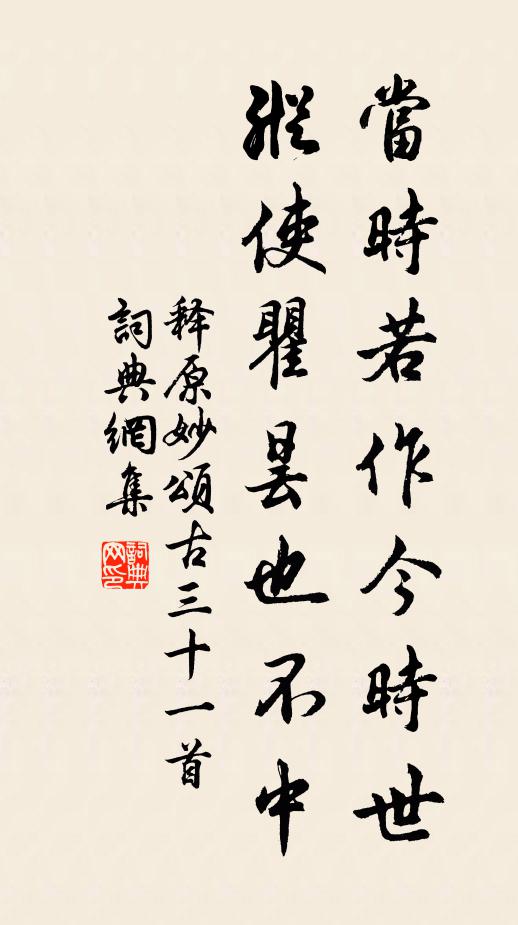 當時若作今時世
縱使瞿曇也不中
释原妙頌古三十一首
詞典網集
詞典网印